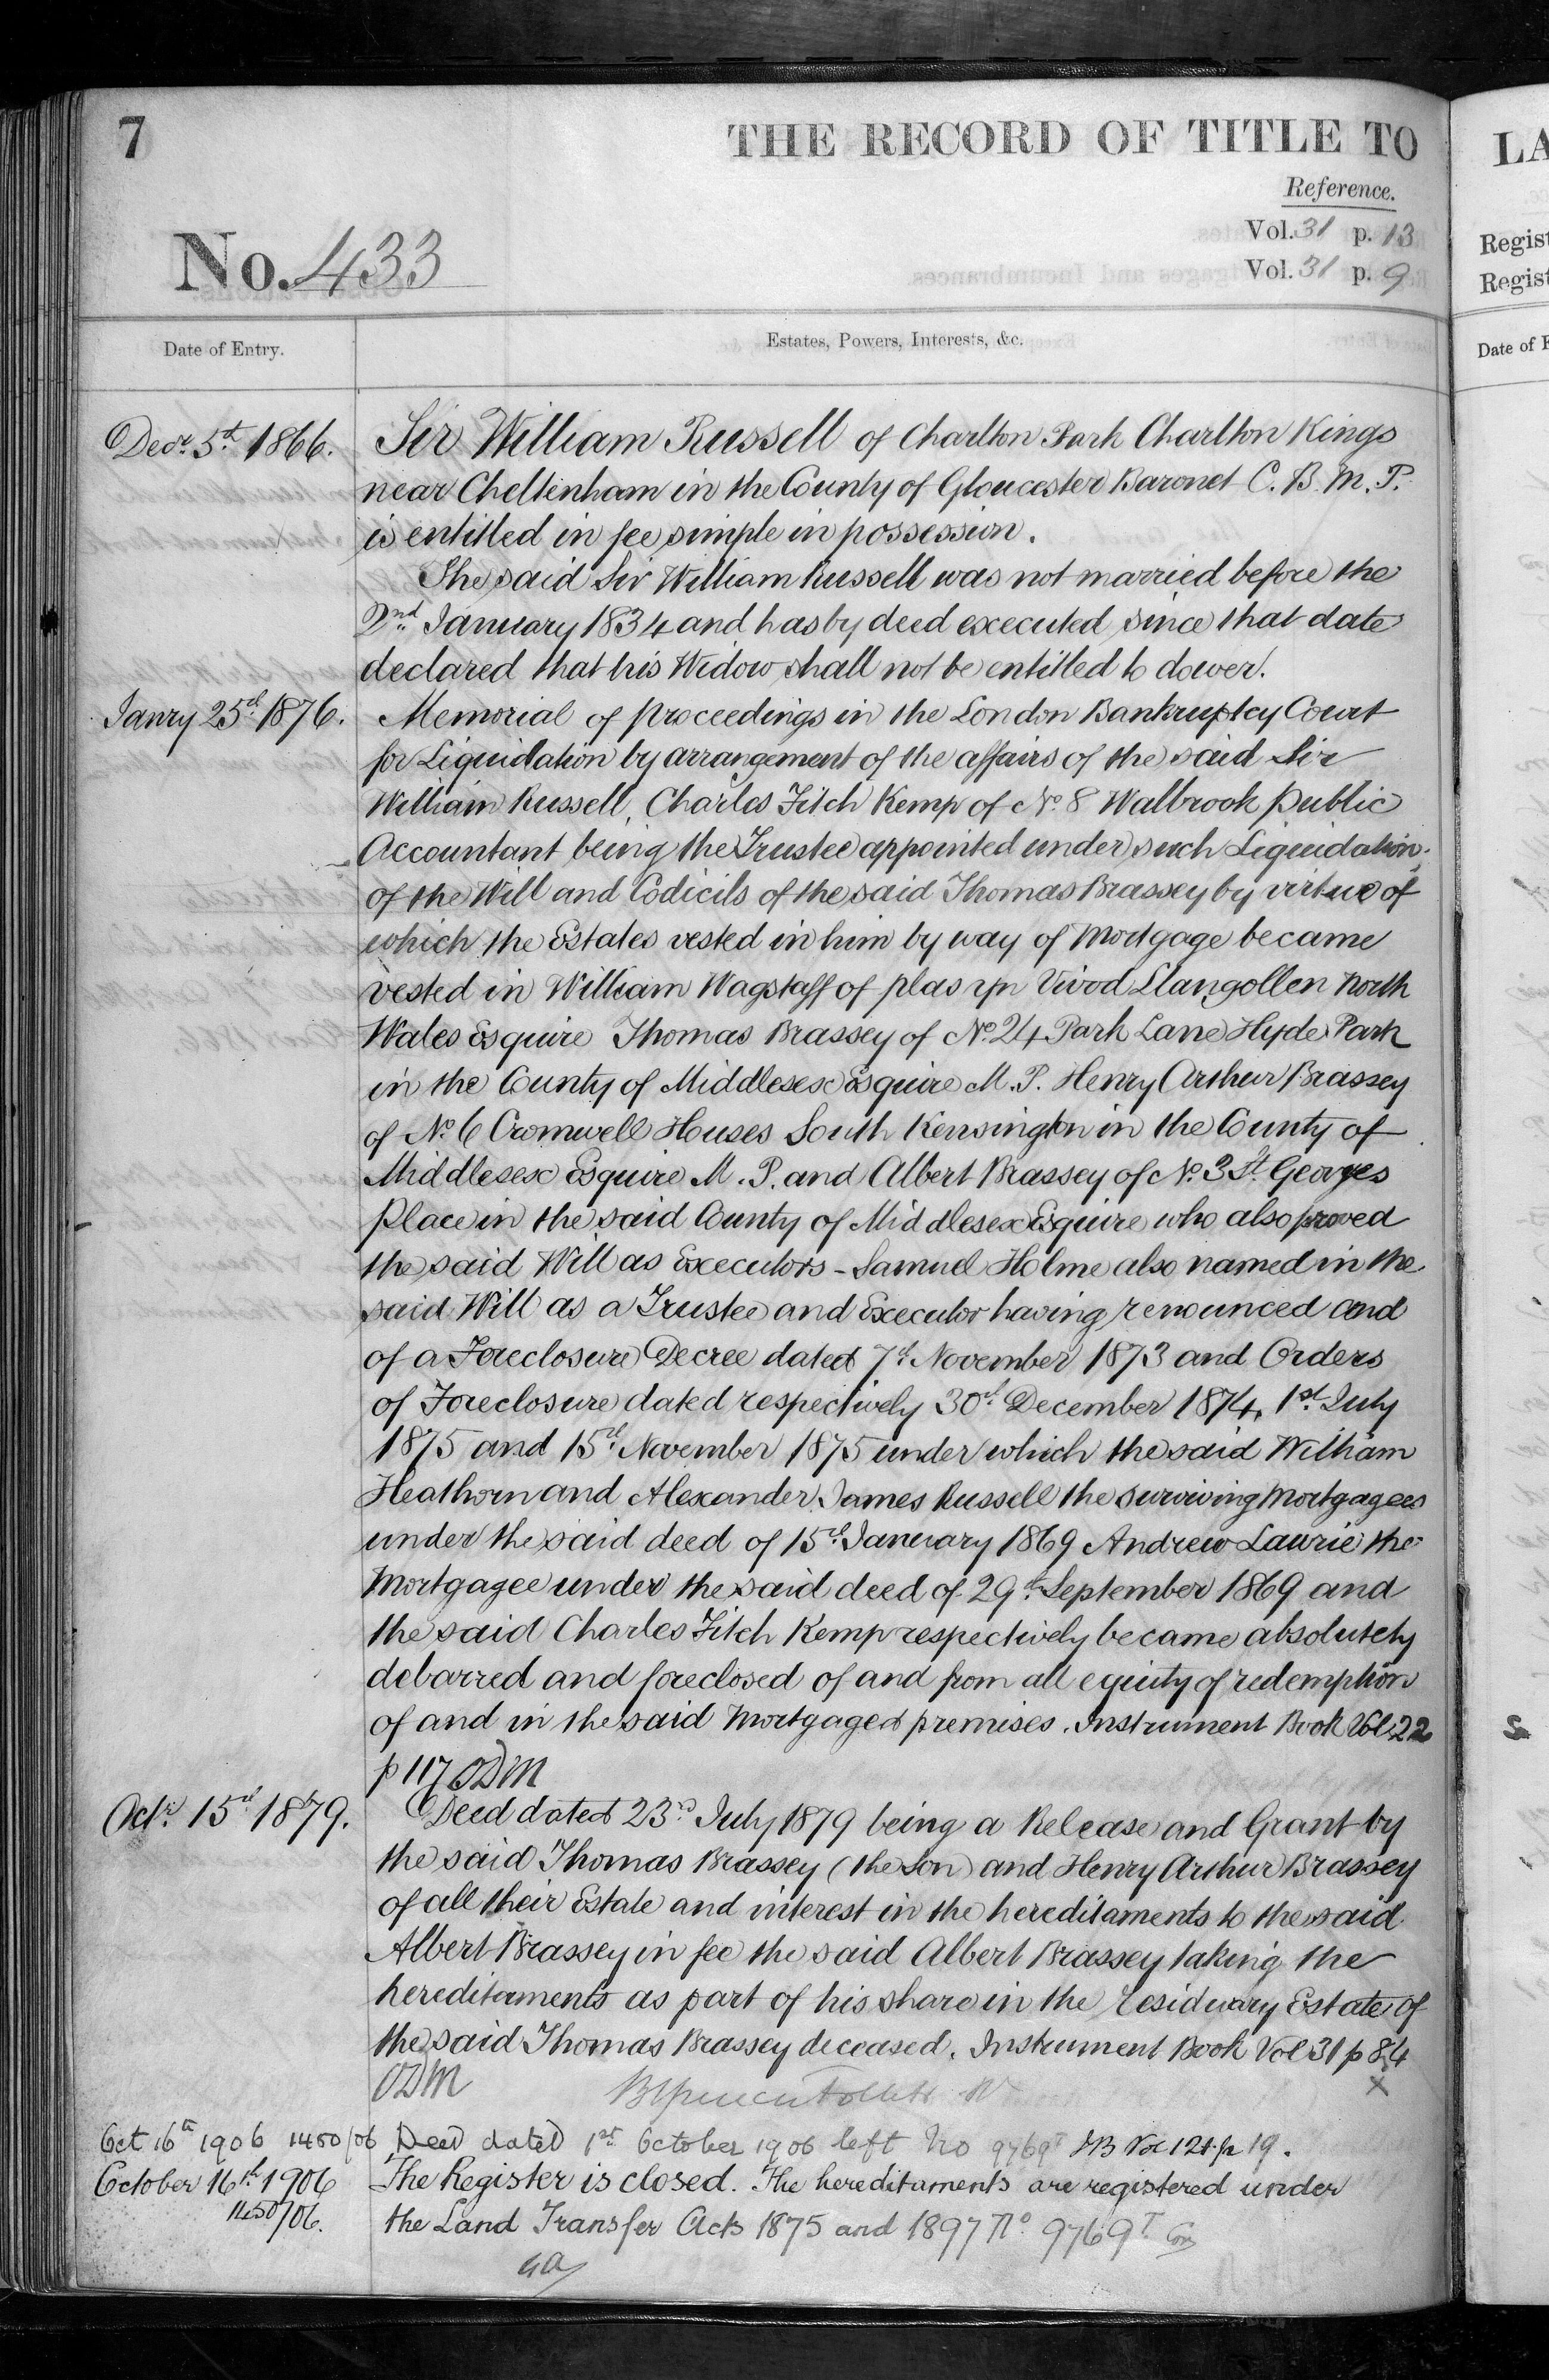 7
THE RECORD OF TITLE TO
Reference.
Vol. 31 p. 13
Vol. 31 p. 9
No. 433
Date of Entry.
Estates, Powers, Interests, &c.
Decr. 5th 1866.
Sir William Russell of Charlton Park Charlton Kings
near Cheltenham in the County of Gloucester Baronet C. B. M. P.
is entitled in fee simple in possession.
The said Sir William Russell was not married before the
2nd January 1834 and has by deed executed since that date
declared that his Widow shall not be entitled to dower.
Janry 25th 1876.
Memorial of proceedings in the London Bankruptcy Court
for Liquidation by arrangement of the affairs of the said Sir
William Russell, Charles Fitch Kemp of No. 8 Walbrook public
Accountant being the Trustee appointed under such Liquidation.
of the Will and Codicils of the said Thomas Brassey by virtue of
which the Estates vested in him by way of Mortgage became
vested in William Wagstaff of plas yn Vivod Llangollen North
Wales Esquire Thomas Brassey of No. 24 Park Lane Hyde Park
in the County of Middlesex Esquire M. P. Henry Arthur Brassey
of No. 6 Cromwell Houses South Kensington in the County of
Middlesex Esquire M. P. and Albert Brassey of No. 3 St. Georges
place in the said County of Middlesex Esquire who also proved
the said Will as Executors - Samuel Holme also named in the
said Will as a Trustee and Executor having renounced and
of a Foreclosure Decree dated 7th November 1873 and Orders
of Foreclosure dated respectively 30th December 1874, 1st July
1875 and 15th November 1875 under which the said William
Heathorn and Alexander James Russell the surviving Mortgagees
under the said deed of 15th January 1869 Andrew Lawrie the
Mortgagee under the said deed of 29th September 1869 and
the said Charles Fitch Kemp respectively became absolutely
debarred and foreclosed of and from all equity of redemption
of and in the said Mortgaged premises. Instrument Book Vol. 22
p 117 ODM
Octr. 15th 1879.
Deed dated 23rd July 1879 being a Release and Grant by
the said Thomas Brassey (the Son) and Henry Arthur Brassey
of all their Estate and interest in the hereditaments to the said
Albert Brassey in fee the said Albert Brassey taking the
hereditaments as part of his share in the residuary Estate of
the said Thomas Brassey deceased. Instrument Book Vol 31 p 84
ODM
x
Oct 16th 1906 1450/06 Deed dated 1st October 1906 left No 9769T IB Vol 121 p 19.
October 16th 1906 The Register is closed. The hereditaments are registered under
1450/06. the Land Transfer Acts 1875 and 1897 No 9769T
LA
Regist
Regist
Date of E